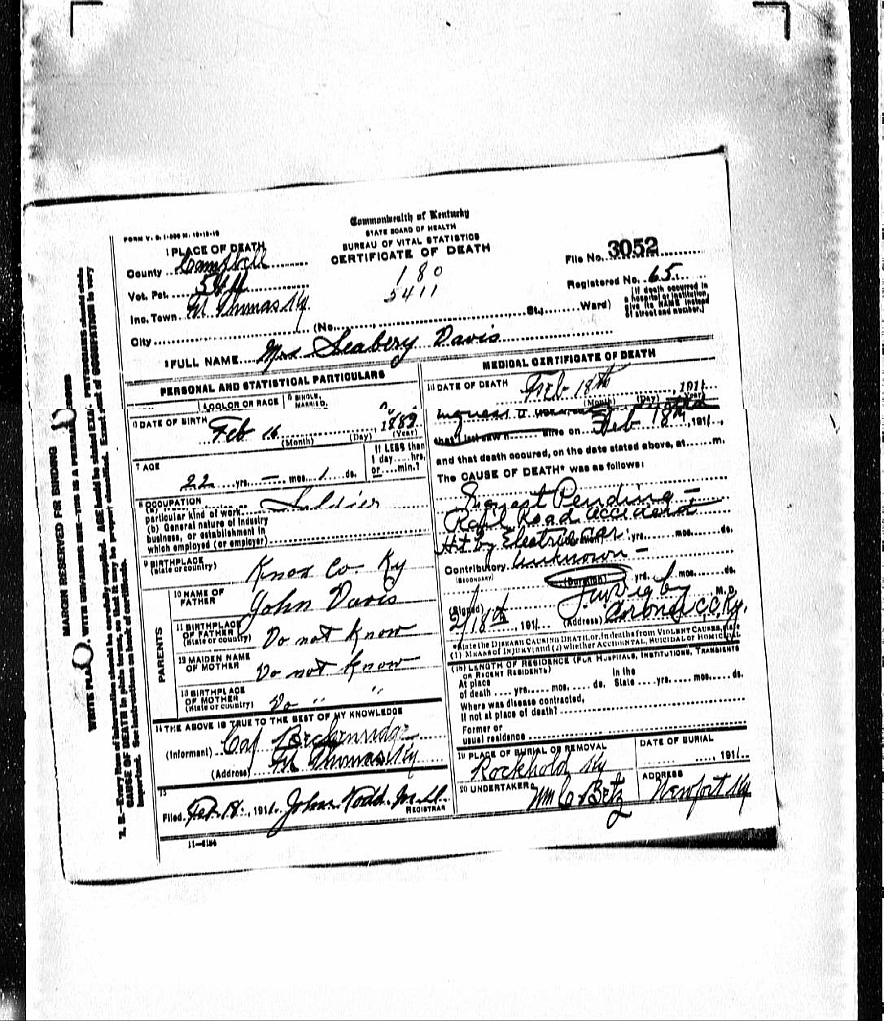 Commonwealth of Kentucky
STATE BOARD OF HEALTH
BUREAU OF VITAL STATISTICS
CERTIFICATE OF DEATH
1 PLACE OF DEATH
County Campbell
Vot. Pct. 544
Inc. Town Ft Thomas Ky
City (No. St., Ward)
180
5411
File No. 3052
Registered No. 65
[If death occurred in a hospital or institution give its NAME instead of street and number.]
2 FULL NAME Mrs Seabery Davis
PERSONAL AND STATISTICAL PARTICULARS
COLOR OR RACE 5 SINGLE, MARRIED,
6 DATE OF BIRTH Feb 16, 1889
(Month) (Day) (Year)
7 AGE
22 yrs. — mos. 1 ds.
If LESS than 1 day hrs. or min.?
8 OCCUPATION Soldier
particular kind of work
(b) General nature of industry
business, or establishment in
which employed (or employer)
9 BIRTHPLACE
(State or country) Knox Co Ky
PARENTS
10 NAME OF FATHER John Davis
11 BIRTHPLACE OF FATHER
(State or country) Do not know
12 MAIDEN NAME OF MOTHER Do not know
13 BIRTHPLACE OF MOTHER
(State or country) Do " "
14 THE ABOVE IS TRUE TO THE BEST OF MY KNOWLEDGE
(Informant)
(Address) Ft Thomas Ky
15
Filed Feb. 18, 1911 John Todd
REGISTRAR
11-5184
MEDICAL CERTIFICATE OF DEATH
16 DATE OF DEATH Feb 18th, 1911
(Month) (Day)
that I last saw h alive on Feb 18th, 191
and that death occured, on the date stated above, at m.
The CAUSE OF DEATH* was as follows:
Pending —
Rail Road accident
Hit by Electric car yrs. mos. ds.
Contributory Unknown —
(SECONDARY)
(Duration) yrs. mos. ds.
(Signed) M.D.
2/18th, 191 (Address) Coroner C.C. Ky.
*State the DISEASE CAUSING DEATH, or, in deaths from VIOLENT CAUSES, state
(1) MEANS OF INJURY; and (2) whether ACCIDENTAL, SUICIDAL or HOMICIDAL.
(18) LENGTH OF RESIDENCE (FOR HOSPITALS, INSTITUTIONS, TRANSIENTS
OR RECENT RESIDENTS)
At place of death yrs. mos. ds. In the State yrs. mos. ds.
Where was disease contracted,
if not at place of death?
Former or
usual residence
19 PLACE OF BURIAL OR REMOVAL
Rockhold Ky
DATE OF BURIAL
191
20 UNDERTAKER
Wm C Betz
ADDRESS
Newport Ky
MARGIN RESERVED FOR BINDING